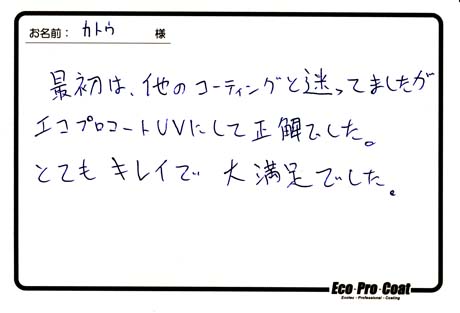 お名前： カトウ 様
最初は、他のコーティングと迷ってましたが
エコプロコートUVにして正解でした。
とてもキレイで 大満足でした。
Eco-Pro-Coat
Ecotec - Professional - Coating